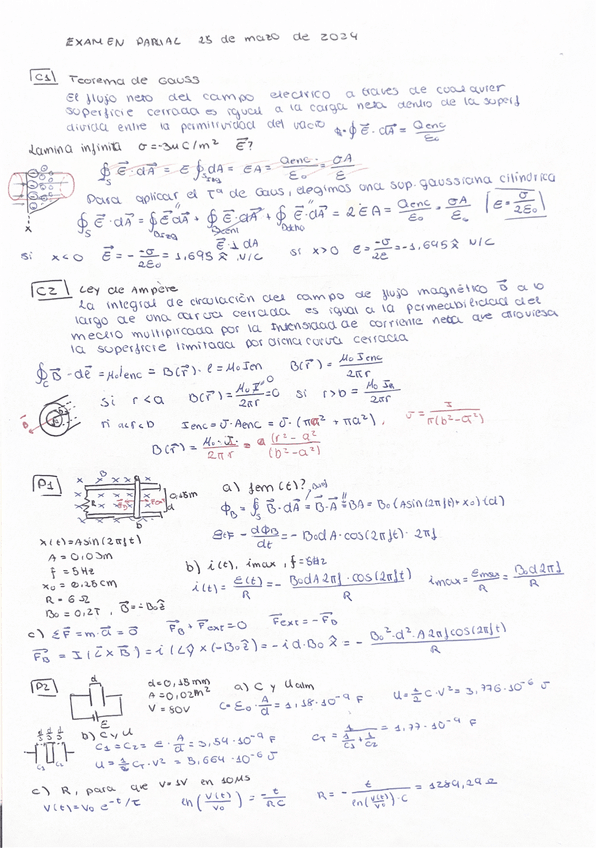 EXAMEN PARCIAL 25 de marzo de 2024
C1 Teorema de Gauss
El flujo neto del campo electrico a traves de cualquier
superficie cerrada es igual a la carga neta dentro de la superf
dividida entre la permitividad del vacio Φ=∮E⃗·dA⃗ = Qenc/ε₀
Lamina infinita σ=-3μC/m² E⃗?
∮s E⃗·dA⃗ = E∮ dA = EA = Qenc/ε₀ = σA/ε₀
Para aplicar el Tª de Gaus, elegimos una sup. gaussiana cilíndrica
∮s E⃗·dA⃗ = ∮ E⃗dA⃗ + ∮ E⃗·dA⃗ + ∮ E⃗·dA⃗ = 2EA = Qenc/ε₀ = σA/ε₀ E = σ/2ε₀
E⃗⊥dA
si x<0 E⃗ = -σ/2ε₀ = 1,695 x̂ N/C si x>0 E = -σ/2ε = -1,695 x̂ N/C
x
C2 Ley de Ampère
La integral de circulación del campo de flujo magnético B⃗ a lo
largo de una curva cerrada es igual a la permeabilidad del
medio multiplicada por la intensidad de corriente neta que atraviesa
la superficie limitada por dicha curva cerrada
∮c B⃗·dℓ⃗ = μ₀Ienc = B(r⃗)·ℓ = μ₀Ien B(r⃗) = μ₀Ienc/2πr
si r<a B(r⃗) = μ₀I/2πr = 0 si r>b = μ₀I/2πr
si a<r<b Ienc = J·Aenc = J·(πa² + πa²), J = I/π(b²-a²)
B(r⃗) = μ₀·I/2πr = (r²-a²)/(b²-a²)
P1
0,15m
d
R
x(t) = A sin(2πft)
A = 0,03m
f = 5Hz
x₀ = 0,25cm
R = 6Ω
B₀ = 0,2T, B⃗ = -B₀ẑ
a) fem(t)?
Φ_B = ∮s B⃗·dA⃗ = B⃗·A⃗ = BA = B₀(A sin(2πft)+x₀)(d)
-dΦ_B/dt = -B₀dA·cos(2πft)·2πf
b) i(t), imax, f=5Hz
i(t) = ε(t)/R = -B₀dA2πf·cos(2πft)/R imax = εmax/R = B₀d2πf/R
c) ΣF⃗ = m·a⃗ = 0⃗ F⃗_B + F⃗ext = 0 F⃗ext = -F⃗_B
F⃗_B = I(L⃗×B⃗) = i(Lŷ)×(-B₀ẑ) = -i·d·B₀ x̂ = -B₀²·d²·A2πf cos(2πft)/R
P2
ε
d = 0,15mm
A = 0,02m²
V = 80V
a) C y Ualm
C = ε₀·A/d = 1,18·10⁻⁹ F U = ½C·V² = 3,776·10⁻⁶ J
b) C y U
C1 C2
C₁ = C₂ = ε·A/d = 3,54·10⁻⁹ F C_T = 1/(1/C₁+1/C₂) = 1,77·10⁻⁹ F
U = ½C_T·V² = 5,664·10⁻⁶ J
c) R, para que V=1V en 10μs
V(t) = V₀ e^(-t/τ) ln(V(t)/V₀) = -t/RC R = -t/(ln(V(t)/V₀)·C) = 1289,29Ω